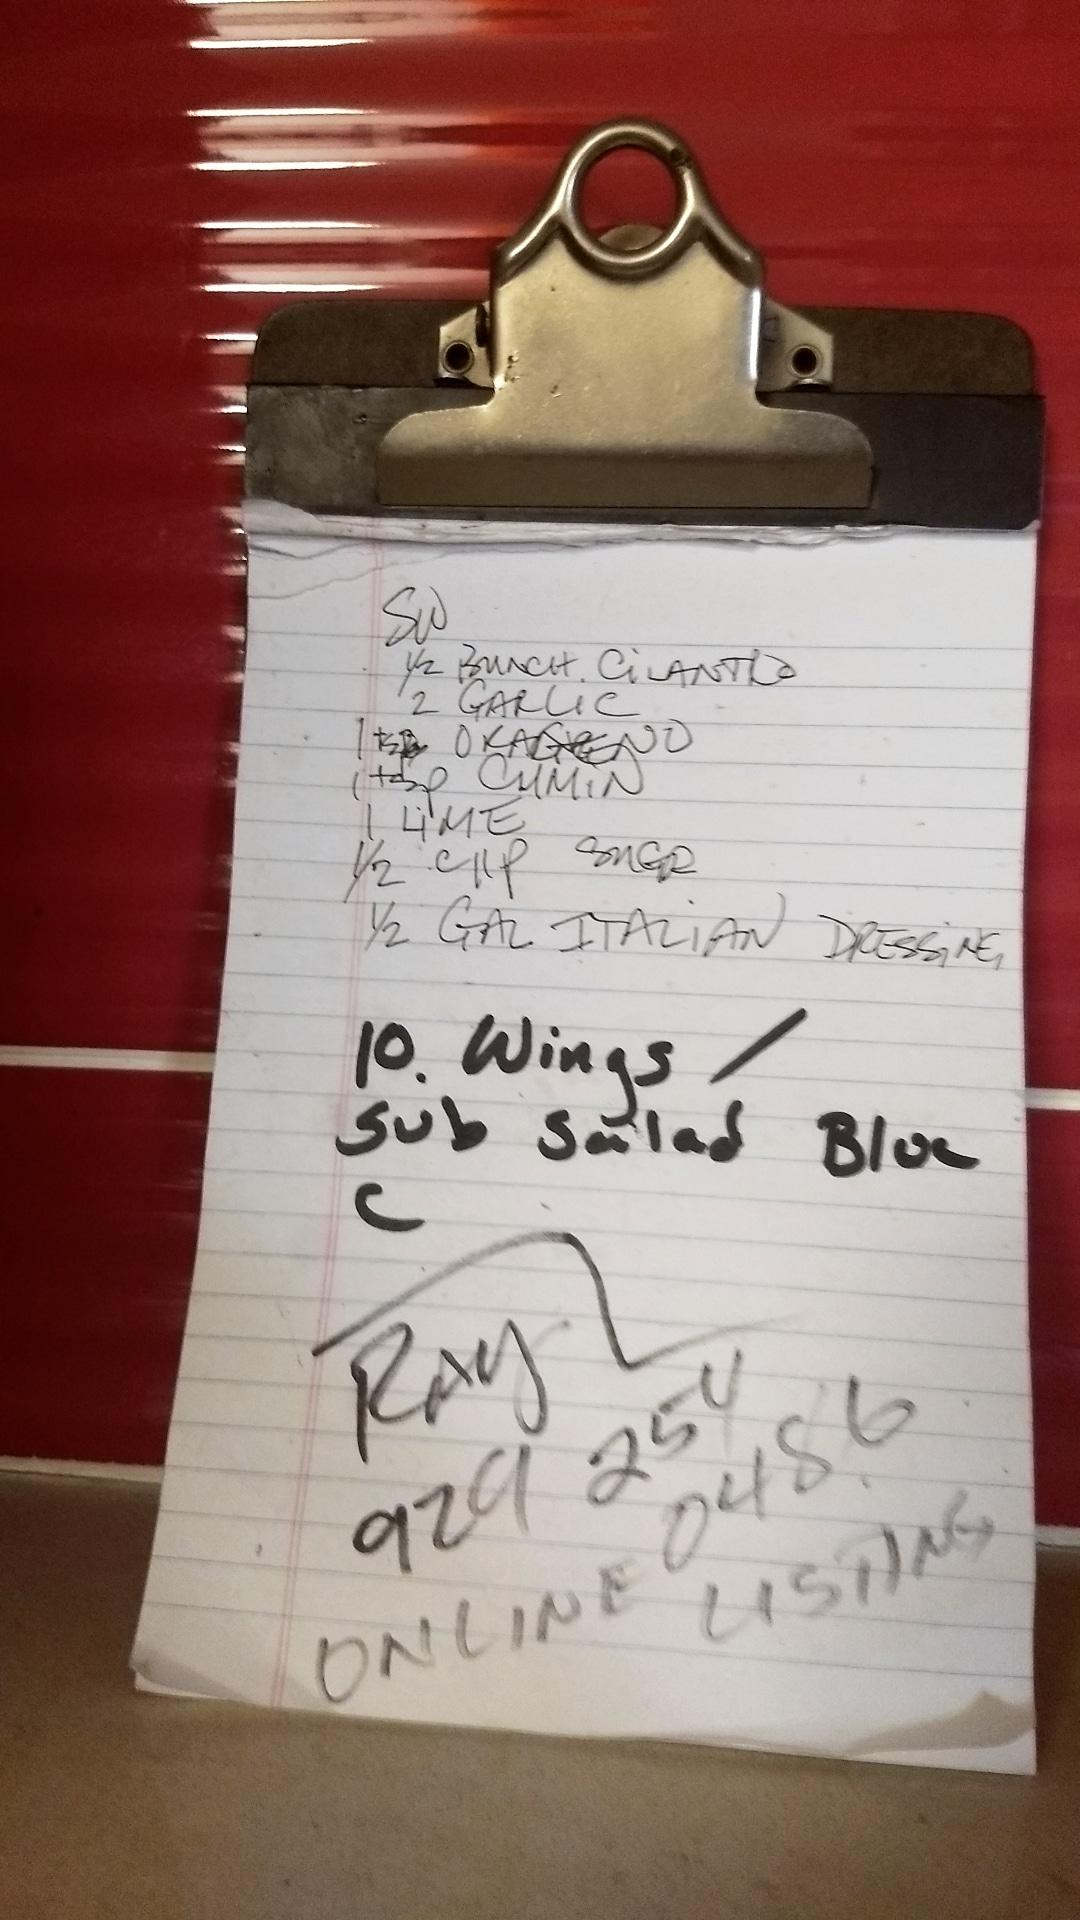 SW
1/2 BUNCH. CiLANTRO
2 GARLIC
1 tsp
1 tsp CUMiN
1 LiME
1/2 CUP SUGR
1/2 GAL ITALiAN DRESSiNG
10. Wings /
Sub Salad Blue
C
RAY
929 254
0486
ONLINE LISTING